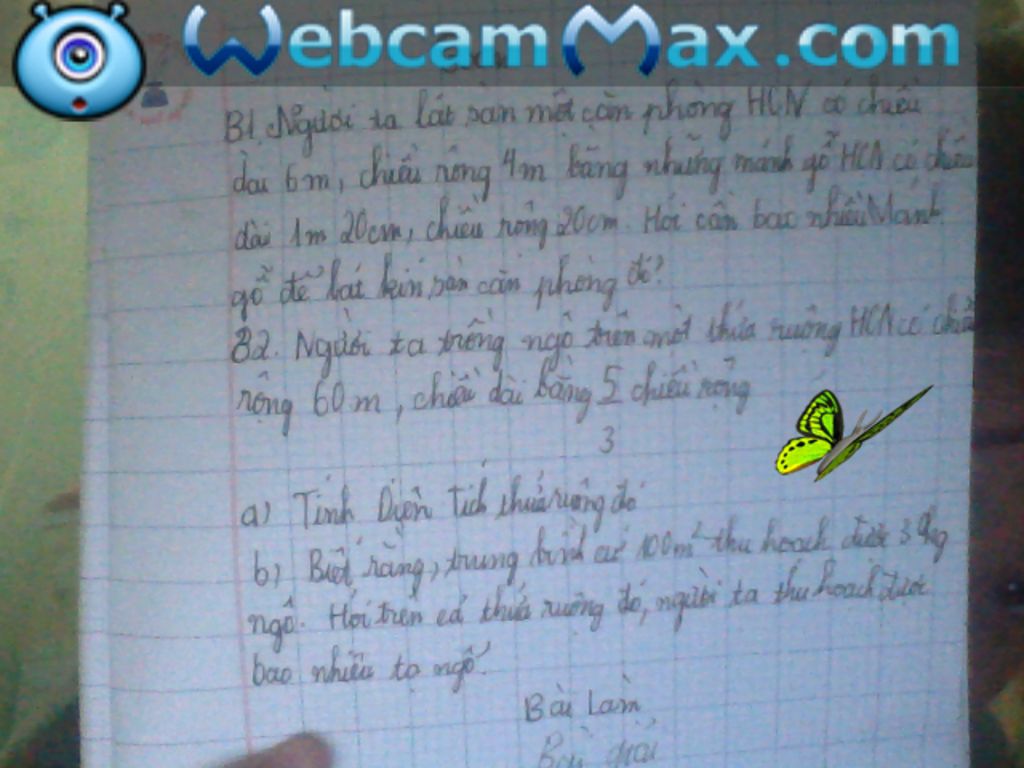 WebcamMax.com
B1. Người ta lát sàn một căn phòng HCN có chiều
dài 6m, chiều rộng 4m bằng những mảnh gỗ HCN có chiều
dài 1m 20cm, chiều rộng 20cm. Hỏi cần bao nhiêu Mảnh
gỗ để lát kín sàn căn phòng đó?
B2. Người ta trồng ngô trên một thửa ruộng HCN có chiều
rộng 60m, chiều dài bằng 5 chiều rộng
3
a) Tính Diện Tích thửa ruộng đó
b) Biết rằng, trung bình cứ 100m² thu hoạch được 3 kg
ngô. Hỏi trên cả thửa ruộng đó, người ta thu hoạch được
bao nhiêu tạ ngô?
Bài Làm
Bài giải